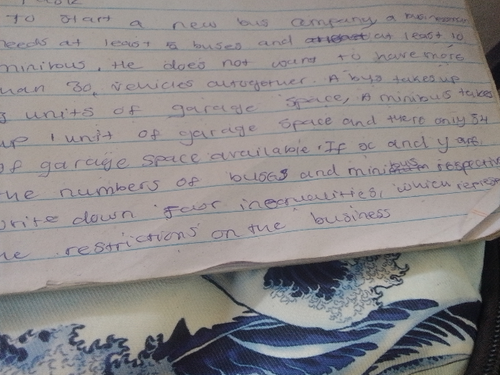 To start a new bus company a business
needs at least 5 buses and at least 10
minibus. He does not want to have more
than 30, vehicles altogether. A bus takes up
3 units of garage space, A minibus takes
up 1 unit of garage space and there only 54
of garage space available. If x and y are
the numbers of buses and minibus respecti
write down four inequalities, which repres
the restrictions on the business